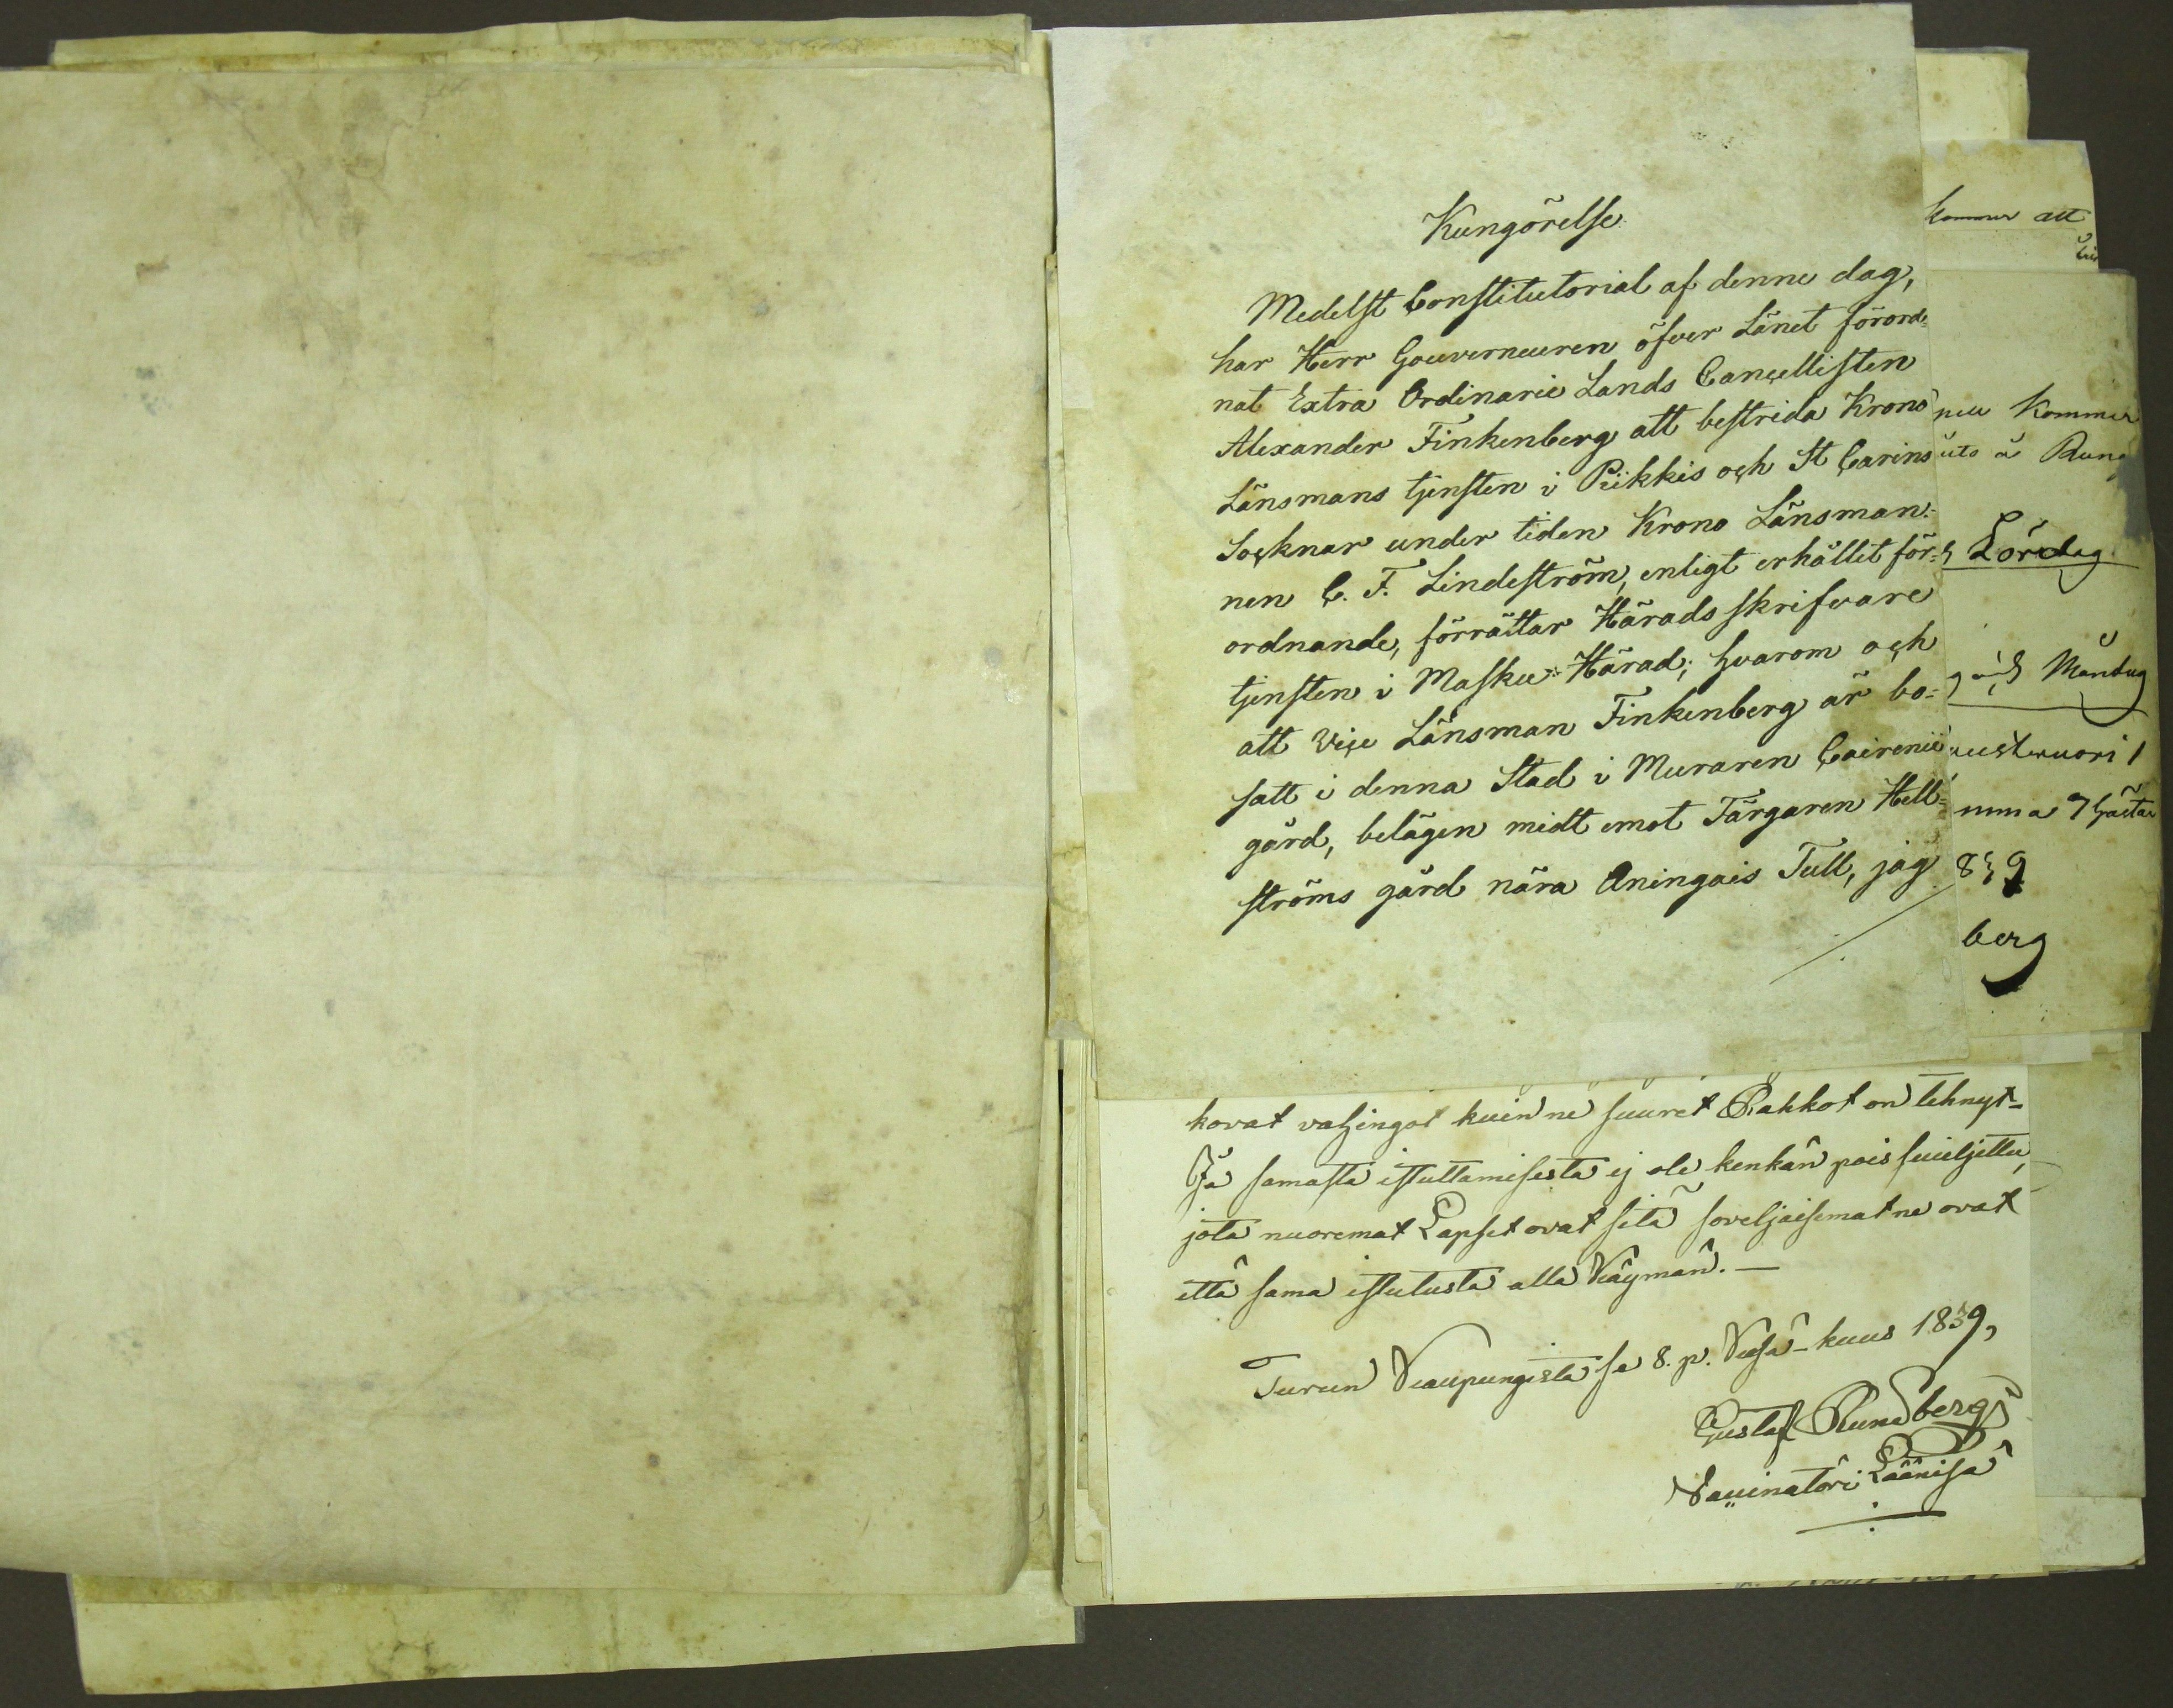 Kungörelse
Medelst Constitutorial af denne dag,
har Herr Gouverneuren öfver Länet förord-
nat Extra Ordinarie Lands Cancellisten
Alexander Finkenberg att bestrida Krono
Länsmans tjensten i Piikkis och St Carins
Socknar under tiden Krono Länsman-
nen C. F. Lindeström, enligt erhållit för-
ordnande, förrättar Härads skrifvare
tjensten i Masku Härad; hvarom och
att Vice Länsman Finkenberg är bo-
satt i denna Stad i Muraren Cairenii
gård, belägen midt emot Färgaren Hell-
ströms gård nära Aningais Tull, jag
kommer att
kommer
Lördag
Måndag
berg
kovat vahingot kuin ne suuret Rakkot on tehnyt-
Ja samasta istuttamisesta ej ole kenkän pois suieljettu,
jota nuoremat Lapset ovat sitä soveljaisemat ne ovat
että sama istutusta alla Käymän.—
Turun Kaupungista se 8. p. Kesä-kuus 1839,
Gustaf Rundberg
Läänisä